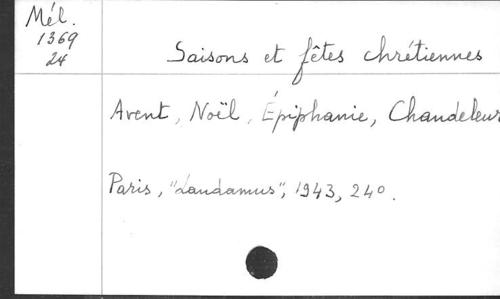 Mél.
1369
24
Saisons et fêtes chrétiennes
Avent, Noël, Épiphanie, Chandeleur
Paris, "Laudamus", 1943, 24o.